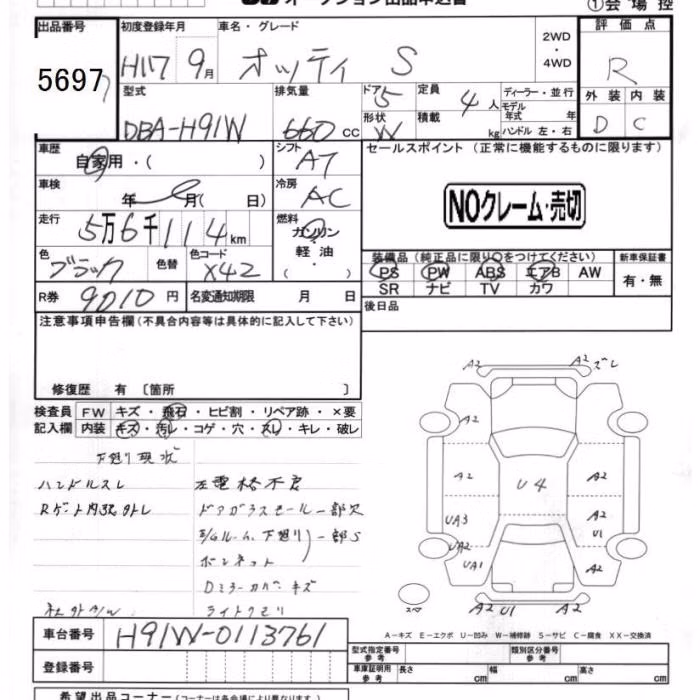 オークション出品申込書
①会場控
出品番号 初度登録年月 車名・グレード 評価点
5697 H17 9月 オッティ S 2WD・4WD R
型式 排気量 ドア 定員 ディーラー・並行 外装 内装
DBA-H91W 660cc 5 4人 モデル年式 年 D C
形状 W 積載 kg ハンドル 左・右
車歴 自家用・( ) シフト AT セールスポイント (正常に機能するものに限ります)
車検 年 月( 日) 冷房 AC NOクレーム・売切
走行 5万6千114km 燃料 ガソリン・軽油・( )
色 ブラック 色替 色コード X42 装備品(純正品に限り○をつけてください) 新車保証書
PS PW ABS エアB AW 有・無
SR ナビ TV カワ
R券 9010円 名変通知期限 月 日 後日品
注意事項申告欄(不具合内容等は具体的に記入して下さい)
修復歴 有 〔箇所 〕
検査員記入欄 FW キズ・飛石・ヒビ割・リペア跡・×要
内装 キズ・汚レ・コゲ・穴・スレ・キレ・破レ
下廻り現状
ハンドルスレ 左電格不良
Rゲート内張外レ ドアガラスモール一部欠
E/gルーム、下廻り 一部S
ボンネット
Dミラーカバーキズ
ライトクモリ
A2 A2 ズレ
A2
A2 U4 A2
UA3 A2
U1
UA2 A2
UA1 A2
スペア A2 U1 A2
車台番号 H91W-0113761
A-キズ E-エクボ U-凹み W-補修跡 S-サビ C-腐食 XX-交換済
登録番号 型式指定番号 参考 類別区分番号 参考
車庫証明用 参考 長さ cm 幅 cm 高さ cm
希望出品コーナー(コーナーは各会場により異なります。)